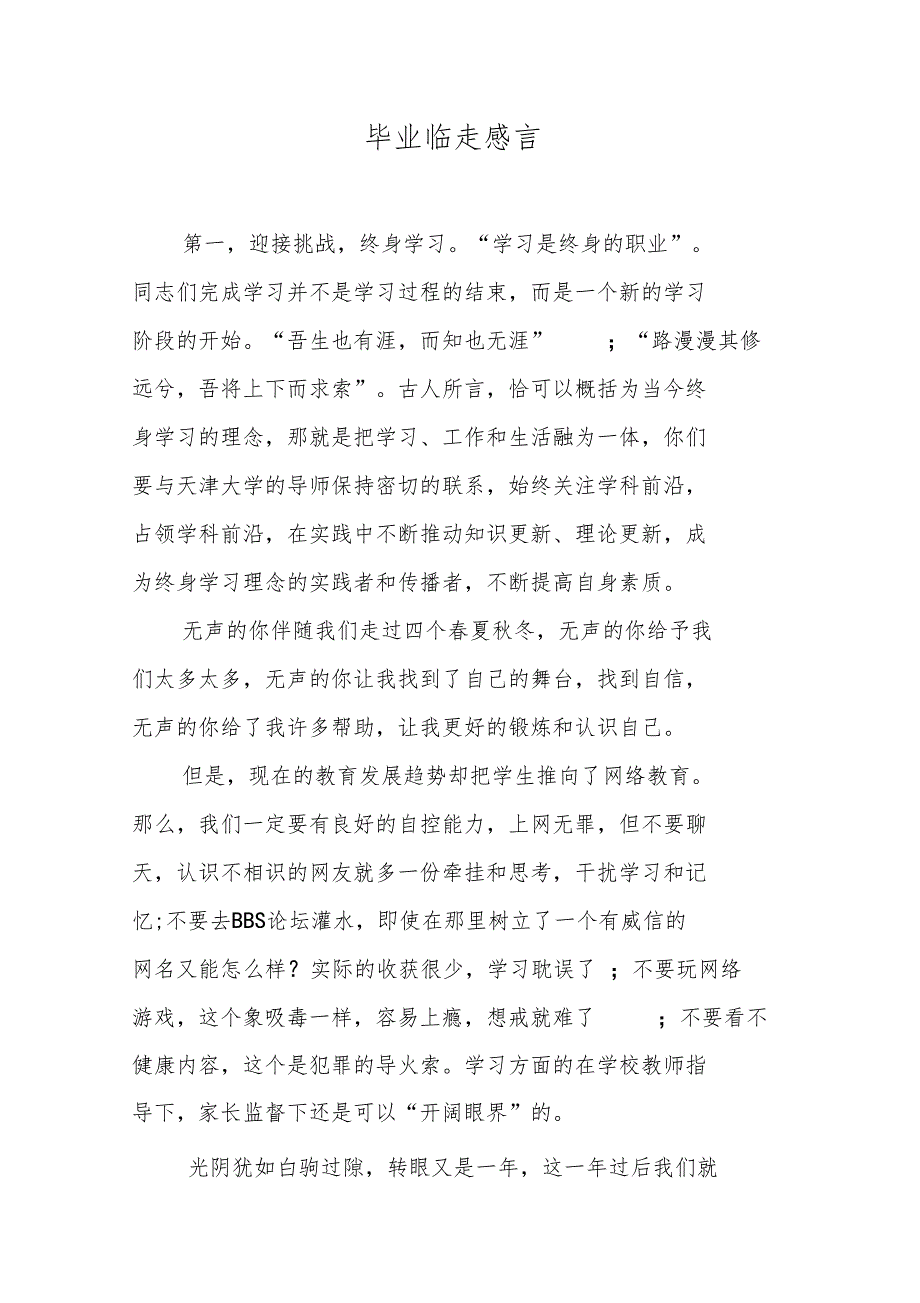 毕业临走感言
第一，迎接挑战，终身学习。“学习是终身的职业”。
同志们完成学习并不是学习过程的结束，而是一个新的学习
阶段的开始。“吾生也有涯，而知也无涯” ；“路漫漫其修
远兮，吾将上下而求索”。古人所言，恰可以概括为当今终
身学习的理念，那就是把学习、工作和生活融为一体，你们
要与天津大学的导师保持密切的联系，始终关注学科前沿，
占领学科前沿，在实践中不断推动知识更新、理论更新，成
为终身学习理念的实践者和传播者，不断提高自身素质。
无声的你伴随我们走过四个春夏秋冬，无声的你给予我
们太多太多，无声的你让我找到了自己的舞台，找到自信，
无声的你给了我许多帮助，让我更好的锻炼和认识自己。
但是，现在的教育发展趋势却把学生推向了网络教育。
那么，我们一定要有良好的自控能力，上网无罪，但不要聊
天，认识不相识的网友就多一份牵挂和思考，干扰学习和记
忆;不要去BBS论坛灌水，即使在那里树立了一个有威信的
网名又能怎么样？实际的收获很少，学习耽误了 ；不要玩网络
游戏，这个象吸毒一样，容易上瘾，想戒就难了 ；不要看不
健康内容，这个是犯罪的导火索。学习方面的在学校教师指
导下，家长监督下还是可以“开阔眼界”的。
光阴犹如白驹过隙，转眼又是一年，这一年过后我们就